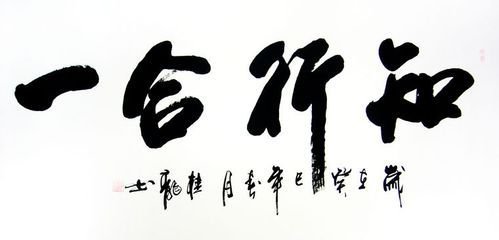 知行合一
岁在癸巳年春月桂龙书